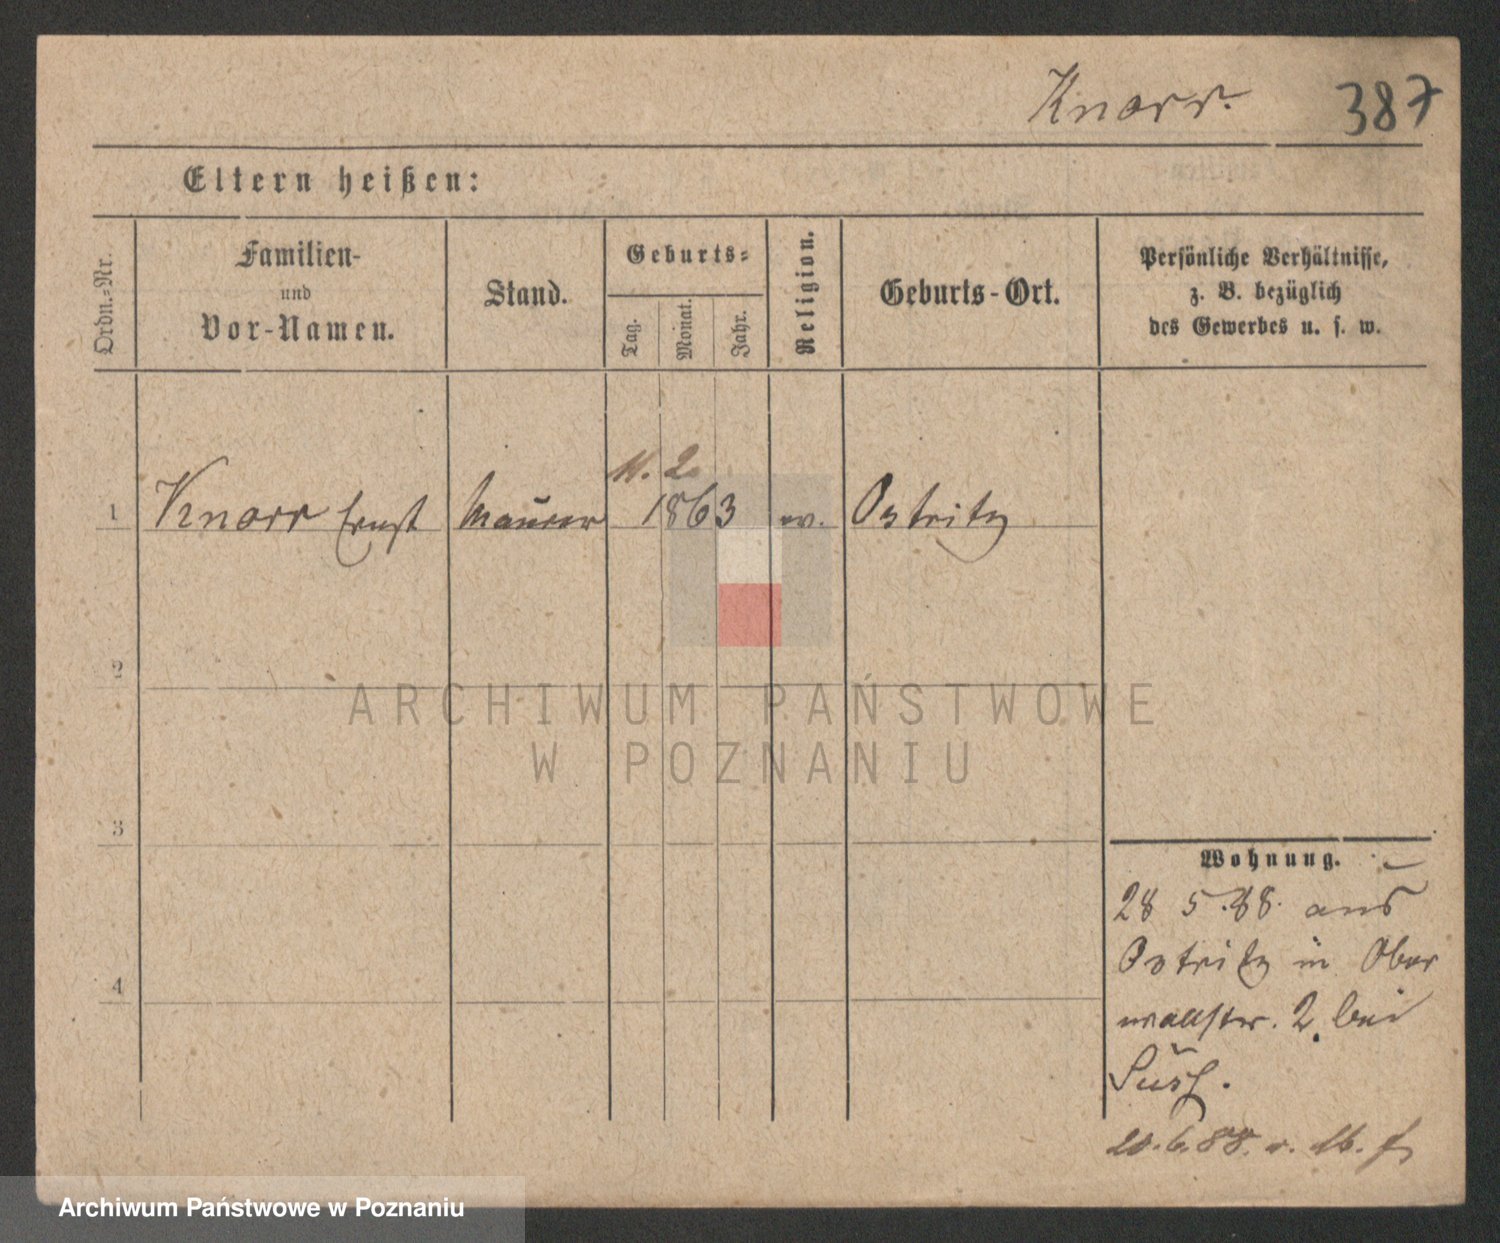 Knorr.
387
Eltern heißen:
Ordn.-Nr.
Familien-
und
Vor-Namen.
Stand.
Geburts-
Tag.
Monat.
Jahr.
Religion.
Geburts-Ort.
Persönliche Verhältnisse,
z. B. bezüglich
des Gewerbes u. s. w.
11. 2
1 Knorr Ernst Maurer 1863 Ostritz
2
3
4
Wohnung.
28 5.88. aus
Ostritz in Ober
wallstr. 2. bei
20.6.88.
ARCHIWUM PAŃSTWOWE
W POZNANIU
Archiwum Państwowe w Poznaniu